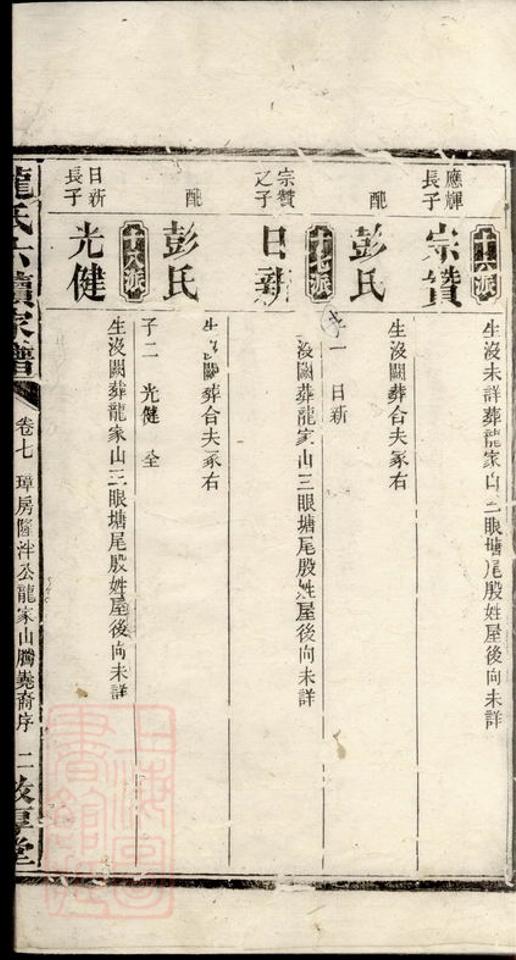 十六派
應輝
長子
宗贊
生沒未詳葬龍家山三眼塘尾殷姓屋後向未詳
配
彭氏
生沒闕葬合夫冢右
子一 日新
十七派
宗贊
之子
日新
生沒闕葬龍家山三眼塘尾殷姓屋後向未詳
配
彭氏
生沒闕葬合夫冢右
子二 光健 全
十八派
日新
長子
光健
生沒闕葬龍家山三眼塘尾殷姓屋後向未詳
龍氏六續家譜
卷七 璋房隆泮公龍家山騰堯裔序 二
敦厚堂
上海圖
書館藏